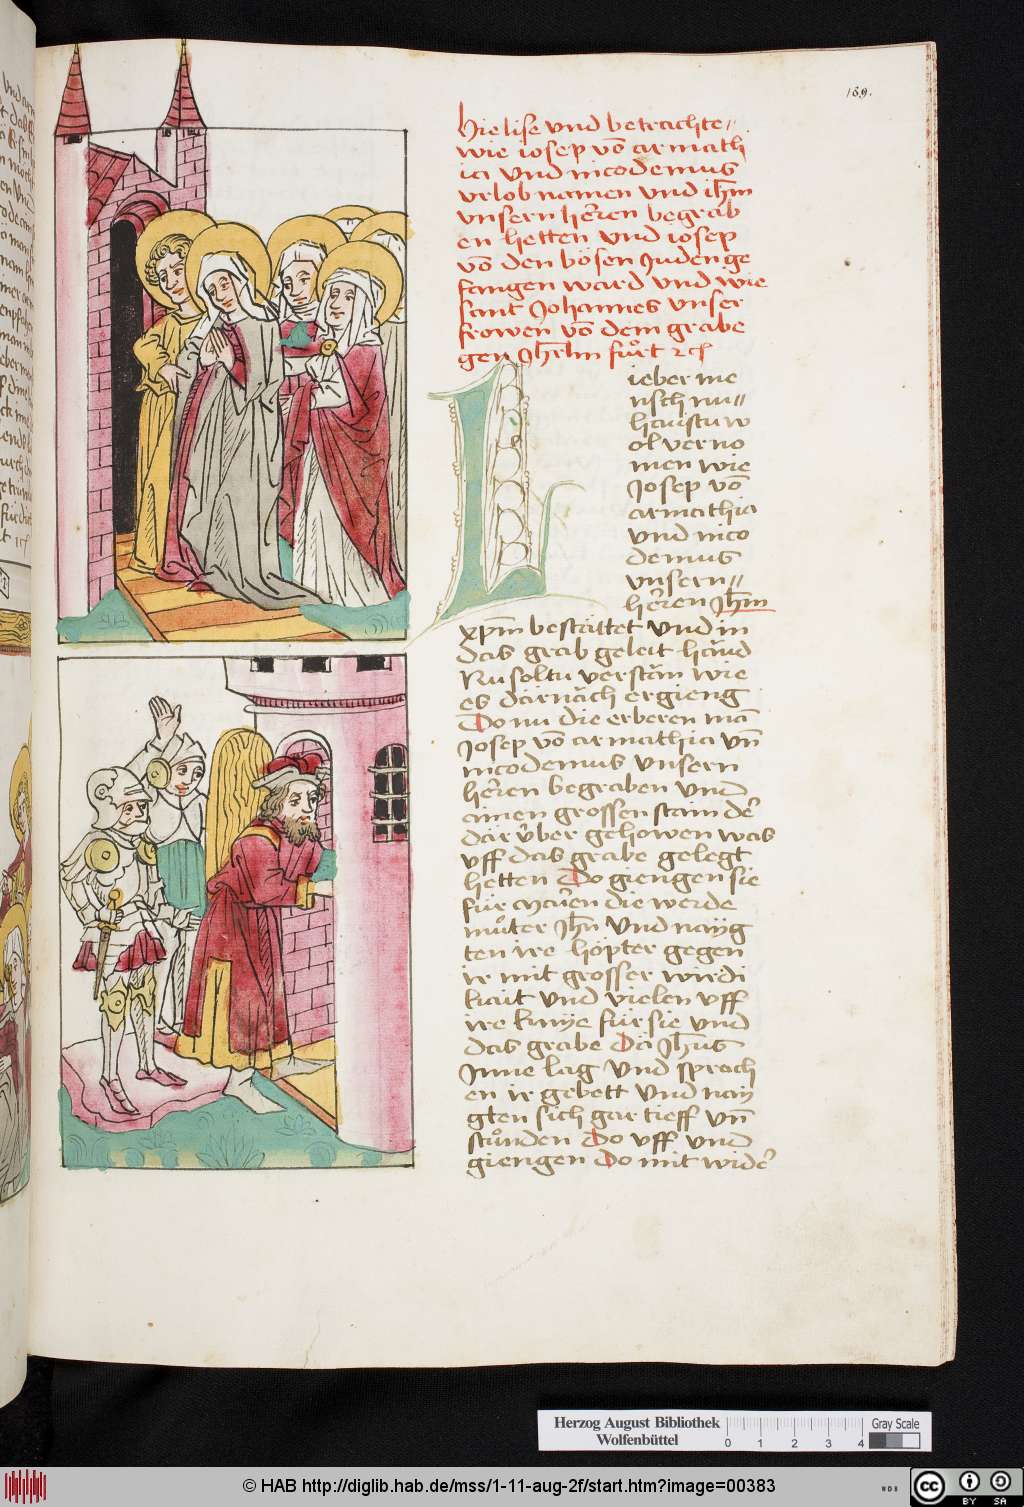 189.
Hie lise vnd betrachte
wie iosep vō armath
ia vnd nicodemus
vrlob namen vnd ih̄m
vnsern heren begrab
en hetten vnd iosep
vō den bösen Juden ge
fangen ward vnd wie
sant Johannes vnser
frowen vō dem grabe
gen Jh̄rlm fůrt ⁊c
Lieber me
nsch nu
hanstu w
ol verno
men wie
Josep vō
armathia
vnd nico
demus
vnsern
heren Jh̄m
xpm̄ bestättet vnd in
das grab geleit händ
Nu soltu verstān wie
es dārnāch ergieng
Do nu die erberen mā
Josep vō armathia vn̄
nicodemus vnsern
heren begraben vnd
ainen grossen stain der
där v̈ber gehowen was
vff das grabe gelegt
hetten Do giengen sie
für Marien die werde
můter Jh̄u vnd nayg
ten ire höpter gegen
ir mit grosser wirdi
kait vnd vielen vff
ire knÿe für sie vnd
das grabe Dā Jh̄us
Jnne lag vnd sproch
en ir gebett vnd nay
gten sich gar tieff vn̄
stůnden Do vff vnd
giengen Do mit wider
Herzog August Bibliothek
Wolfenbüttel
0 1 2 3 4
Gray Scale
© HAB http://diglib.hab.de/mss/1-11-aug-2f/start.htm?image=00383
WDB
cc BY SA